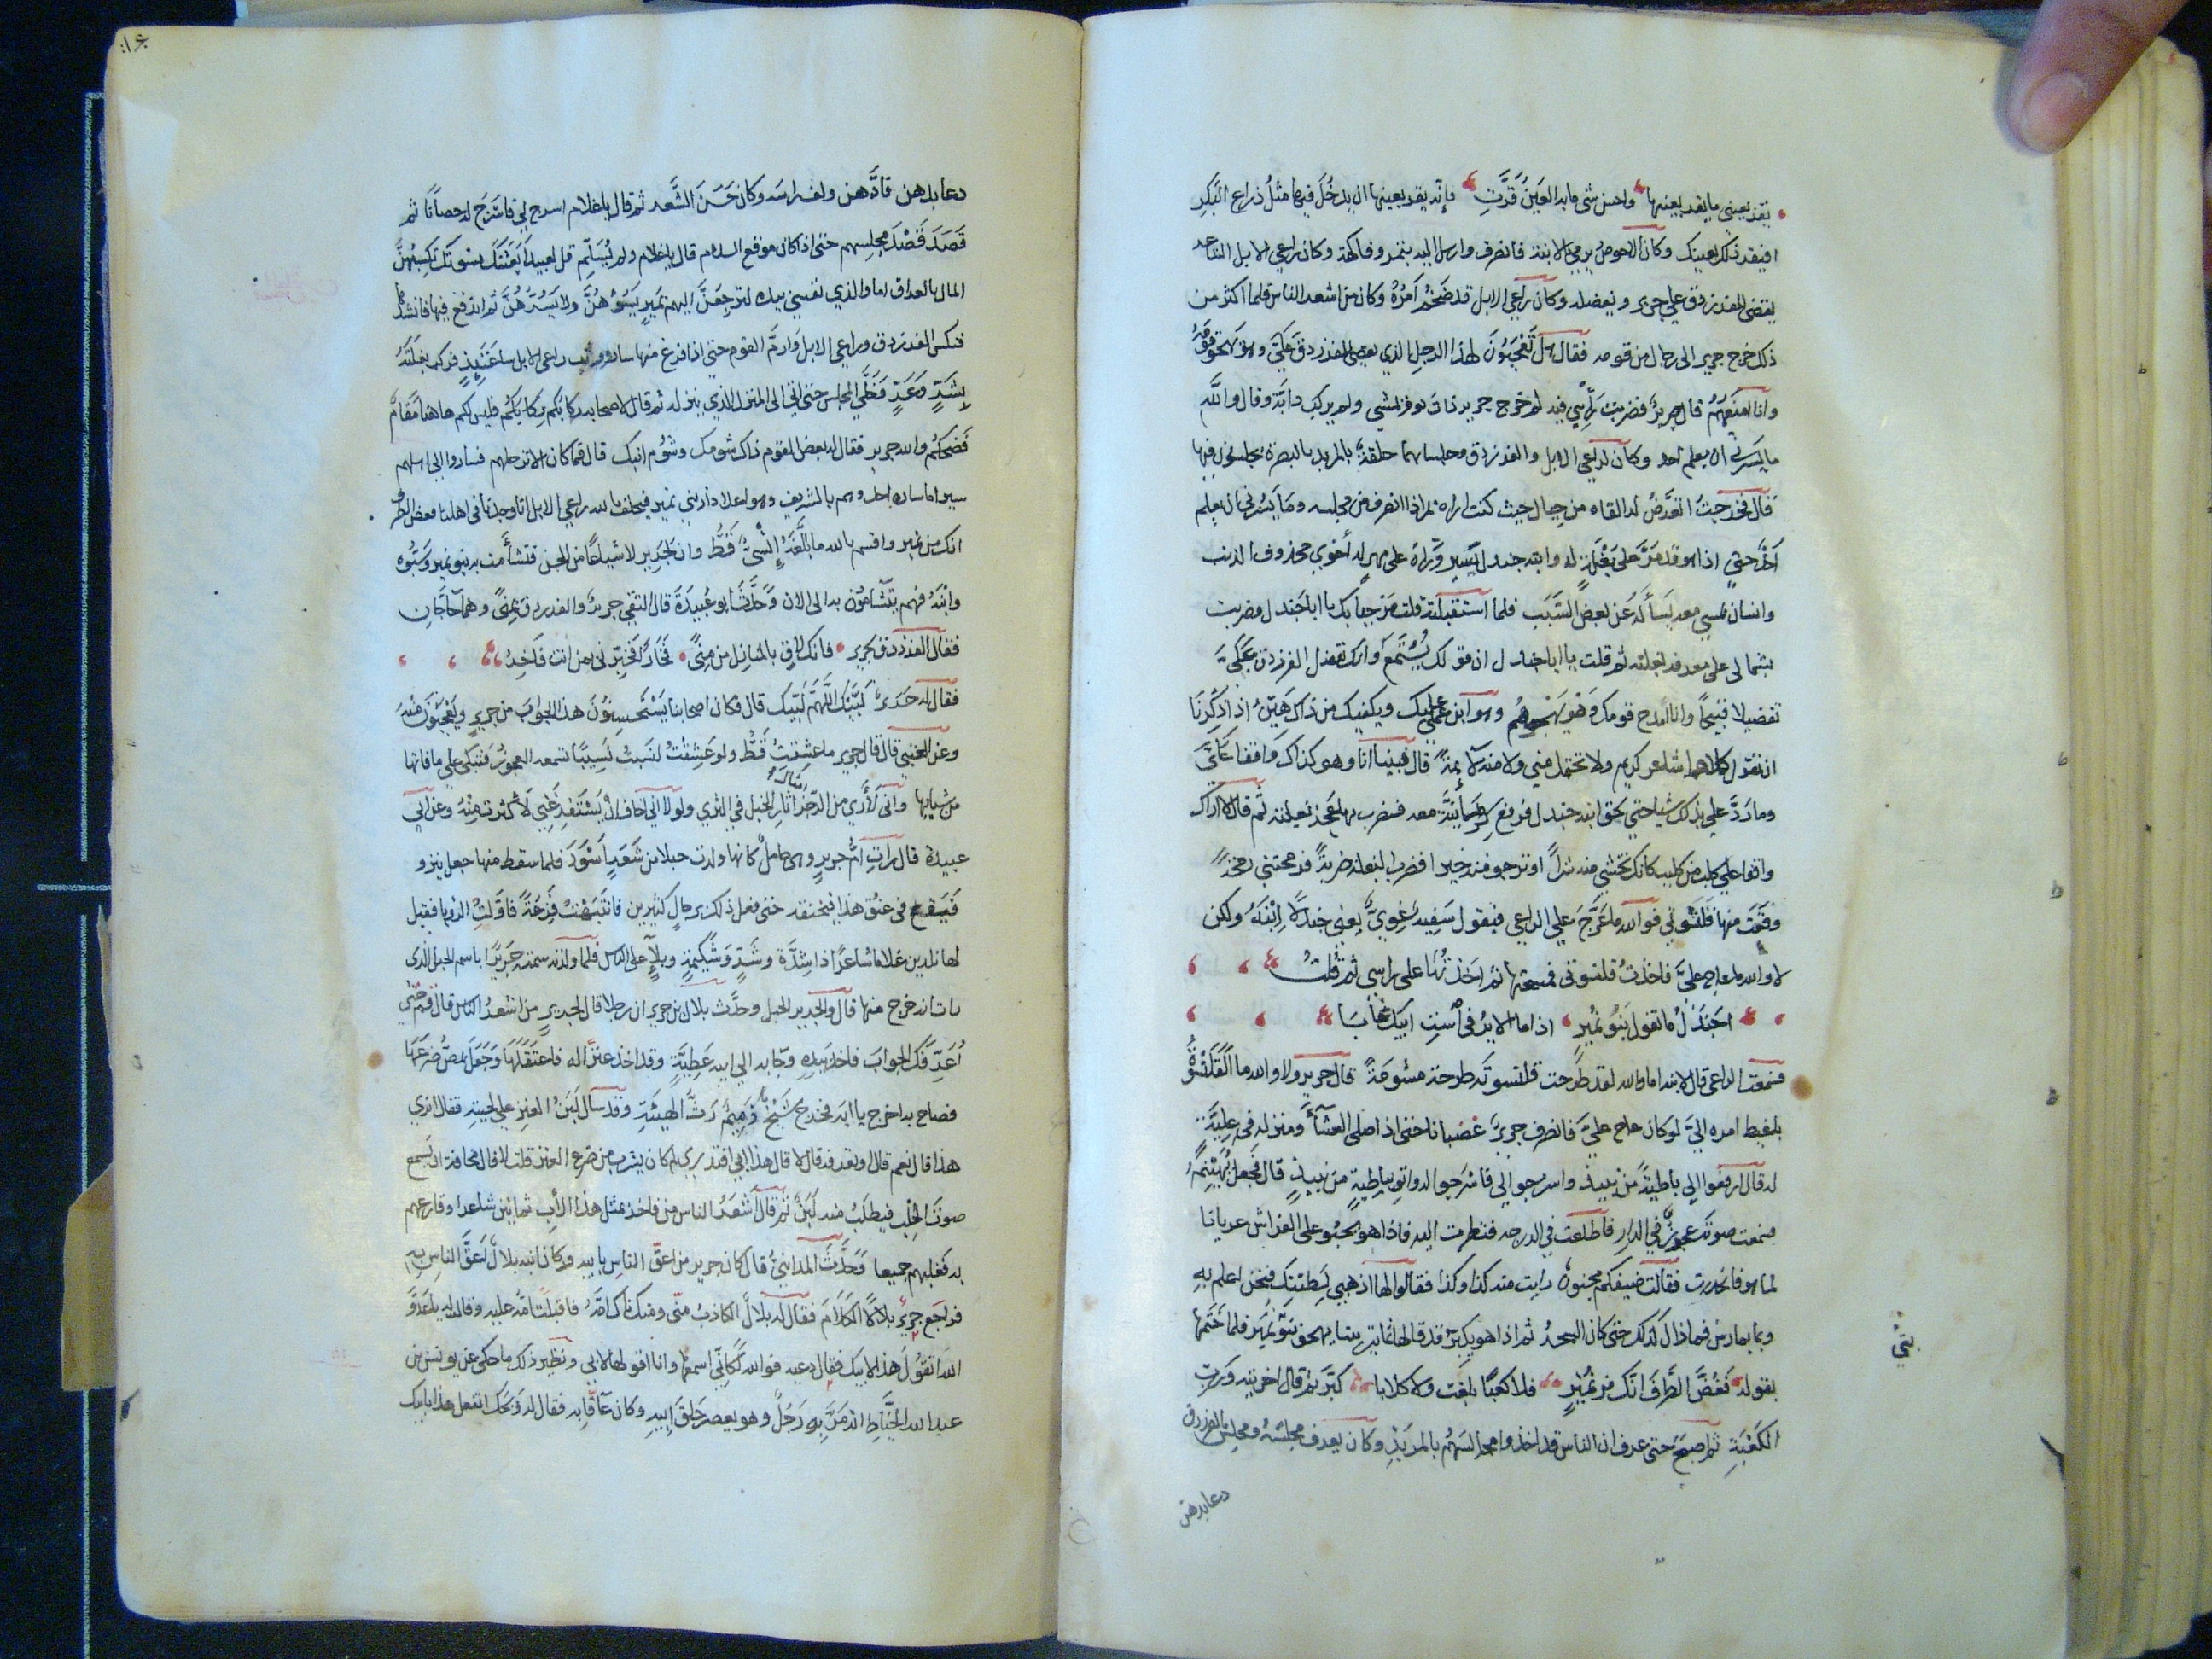 يقر بعيني ما يقر بعينها واحسن شي ما به العين قرت فانه يقر بعينها ان يدخل فيها مثل ذراع البكر
افيقر ذلك بعينك وكان الاحوص يرمي بالابنة فانصرف وارسل اليه بتمر وفاكهة وكان راعي الابل الشاعر
يقضي للفرزدق علي جرير ويفضله وكان راعي الابل قد ضخم امره وكان من اشعر الناس فلما اكثر من
ذلك خرج جرير الى رجال من قومه فقال هل تعجبون لهذا الرجل الذي يقضي للفرزدق عَلَيَّ وهو يهجو قومه
وانا امدحهم قال جرير فضربت رأيي فيه ثم خرج جرير ذات يوم يمشي ولم يركب دابة وقال والله
ما يسرني ان يعلم احد وكان لراعي الابل والفرزدق وجلسائهما حلقة بالمربد بالبصرة يجلسون فيها
قال فخرجت اتعرض له القاه من حيال حيث كنت اراه يمر اذا انصرف من مجلسه وما يسرني ان يعلم
احد حتي اذا هو قد مر على بغلة له وابنه جندل يسير وراه على مهر له أحوي محذوف الذنب
وانسان يمشي معه يسأله عن بعض السبب فلما استقبلته قلت مرحبا بك يا ابا جندل وضربت
بشمالي على معرفة بغلته ثم قلت يا ابا جندل ان قولك يُستمع وانك تفضل الفرزدق عَلَيَّ
تفضيلا قبيحا وانا امدح قومك وهو يهجوهم وهو ابن عمي عليك ويكفيك من ذاك هين اذا ذكرنا
ان تقول كلاهما شاعر كريم ولا تحتمل مني ولا منه لائمة قال فبينا انا وهو كذاك واقفا علي
وما رد علي بذلك شيا حتي لحق ابنه جندل فرفع كرمانية معه فضرب بها عجز بغلته ثم قال لا اراك
واقفا علي كلب من كليب كانك تخشي منه شرا او ترجو منه خيرا فضرب البغلة ضربة فرمحتني رمحة
وقعت منها قلنسوتي فوالله ما عرج علي الراعي فيقول سفيه غوي يعني جندلا ابنه ولكن
لا والله ما عاج علي فاخذت قلنسوتي فمسحتها ثم اخذتها على راسي ثم قلت
اجندل ما تقول بنو نمير اذا ما الاير في است ابيك غابا
فسمعت الراعي قال لابنه اما والله لقد طرحت قلنسوته طرحة مشومة قال جرير ولا والله ما القلنسوة
باغيظ امره اليّ لو كان عاج عليّ فانصرف جرير غضبانا حتى اذا صلى العشآ ومنزله في علية
له قال ارفعوا الي باطية من نبيذ واسرجوا لي فاسرجوا له واتوه بباطية من نبيذ قال فجعل يهينم
فسمعت صوته عجوز في الدار فاطلعت في الدرجه فنظرت اليه فاذا هو يحبو على الفراش عريانا
لما هو فانحدرت فقالت ضيفكم مجنون رايت منه كذا وكذا فقالوا لها اذهبي لطيتك فنحن اعلم به
وبما يمارس فما زال كذلك حتى كان السحر ثم اذا هو يكبر قد قالها ثمانين بيتا يهجو بني نمير فلما ختمها
بقوله فغض الطرف انك من نمير فلا كعبا بلغت ولا كلابا كبر ثم قال اخزيته ورب
الكعبة ثم اصبح حتى عرف ان الناس قد اخذوا مجالسهم بالمربد وكان يعرف مجلسه ومجلس الفرزدق
دعا بدهن
بني
دعا بدهن فادهن ولف راسه وكان حسن الشعر ثم قال يا غلام اسرج لي فاسرج له حصانا ثم
قصد قصد مجلسهم حتى اذا كان موقع السلام قال يا غلام ولم يسلم قل لعبيد ابعثتك نسوتك تكسبهن
المال بالعراق اما والذي نفسي بيده لترجعن اليهم بمير يسوءهن ولا يسرهن ثم اندفع فيها فانشدها
فنكس الفرزدق وراعي الابل وارم القوم حتى اذا فرغ منها سار ووثب راعي الابل ساعتئذ فركب بغلته
بشر وعر وخلى المجلس حتى اتى الى المنزل الذي ينزله ثم قال لاصحابه ركابكم ركابكم فليس لكم هاهنا مقام
فضحكم والله جرير فقال له بعض القوم ذاك شومك وشوم ابنك قال فما كان الا ترحلهم فساروا الى اهلهم
سيرا ما ساره احد وهم بالشريف وهو اعلا دار بني نمير فيحلف بالله راعي الابل انا وجدنا في اهلنا فغض الطرف
انك من نمير واقسم بالله ما بلغه إنسي قط وان لجرير لاشياعا من الجن فتشأمت به بنو نمير وسبوه
وابنه فهم يتشامون به الى الان وحدث ابو عبيدة قال التقى جرير والفرزدق بمنى وهما حاجان
فقال الفرزدق لجرير فانك لاق بالمنازل من منى فخارا فخبرني بمن انت فاخر
فقال له جرير لبيك اللهم لبيك قال فكان اصحابنا يستحسنون هذا الجواب من جرير ويعجبون منه
وعن العتبي قال قال جرير ما عشقت قط ولو عشقت لنسبت نسيبا تسمعه العجوز فتبكي علي ما فاتها
من شبابها واني لأري من الرجز امثال آثار الخيل في الثري ولولا اني اخاف ان يستفرغني لاكثرت منه وعن ابي
عبيدة قال رات ام جرير وهي حامل كانها ولدت حبلا من شعر اسود فلما سقط منها جعل ينزو
فيقع في عنق هذا فيخنقه حتى فعل ذلك برجال كثيرين فانتبهت فزعة فاولت الرويا فقيل
لها تلدين غلاما شاعرا ذا شدة وشر وشكيمة وبلاء على الناس فلما ولدته سمته جريرا باسم الحبل الذي
رات انه خرج منها قال والجرير الحبل وحدث بلال بن جرير ان رجلا قال لجرير من اشعر الناس قال قم حتي
اعرفك الجواب فاخذ بيده وجا به الي ابيه عطية وقد اخذ عنزا له فاعتقلها وجعل يمص ضرعها
فصاح به اخرج يا ابه فخرج شيخ ذميم رث الهيئة وقد سال لبن العنز علي لحيته فقال اتري
هذا قال نعم قال اوتعرفه قال لا قال هذا ابي افتدري لم كان يشرب من ضرع العنز قلت لا قال مخافة ان يسمع
صوت الحلب فيطلب منه لبن ثم قال اشعر الناس من فاخر بمثل هذا الأب ثمانين شاعرا وقارعهم
به فغلبهم جميعا وحدث المدايني قال كان جرير من اعق الناس بابيه وكان ابنه بلال اعق الناس به
فراجع جرير بلالا الكلام فقال له بلال الكاذب مني ومنك ناك امه فاقبلت امه عليه وقالت له يا عدو
الله اتقول هذا لابيك فقال دعيه فوالله لكاني اسمعها وانا اقولها لابي ونظير ذلك ما حكي عن يونس بن
عبد الله الخياط انه مر به رجل وهو يعصر حلق ابيه وكان عاقا به فقال له ويحك اتفعل هذا بابيك